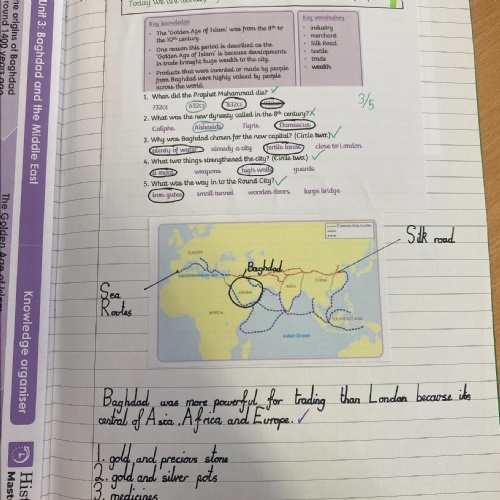 Key knowledge
• The 'Golden Age of Islam' was from the 8th to the 10th century.
• One reason this period is described as the 'Golden Age of Islam' is because developments in trade brought huge wealth to the city.
• Products that were invented or made by people from Baghdad were highly valued by people across the world.
Key vocabulary
• industry
• merchant
• Silk Road
• textile
• trade
• wealth
1. When did the Prophet Muhammad die?
732ce 632ce
3/5
2. What was the new dynasty called in the 8th century?
Caliphs Abbasids Tigris Damascus
3. Why was Baghdad chosen for the new capital? (Circle two:)
plenty of water already a city fertile lands close to London
4. What two things strengthened the city? (Circle two:)
a moat weapons high walls guards
5. What was the way in to the Round City?
iron gates small tunnel wooden doors large bridge
Silk road
EUROPE
Baghdad
ARABIA
INDIA
CHINA
AFRICA
SOUTHEAST ASIA
Indian Ocean
Sea
Routes
Baghdad was more powerful for trading than London because its
central of Asia, Africa and Europe.
1. gold and precious stone
2. gold and silver pots
3. medicines
Unit 3: Baghdad and the Middle East
Knowledge organiser
The Golden Age of Islam
he origins of Baghdad
round 1400 years ago
Hist
Mast